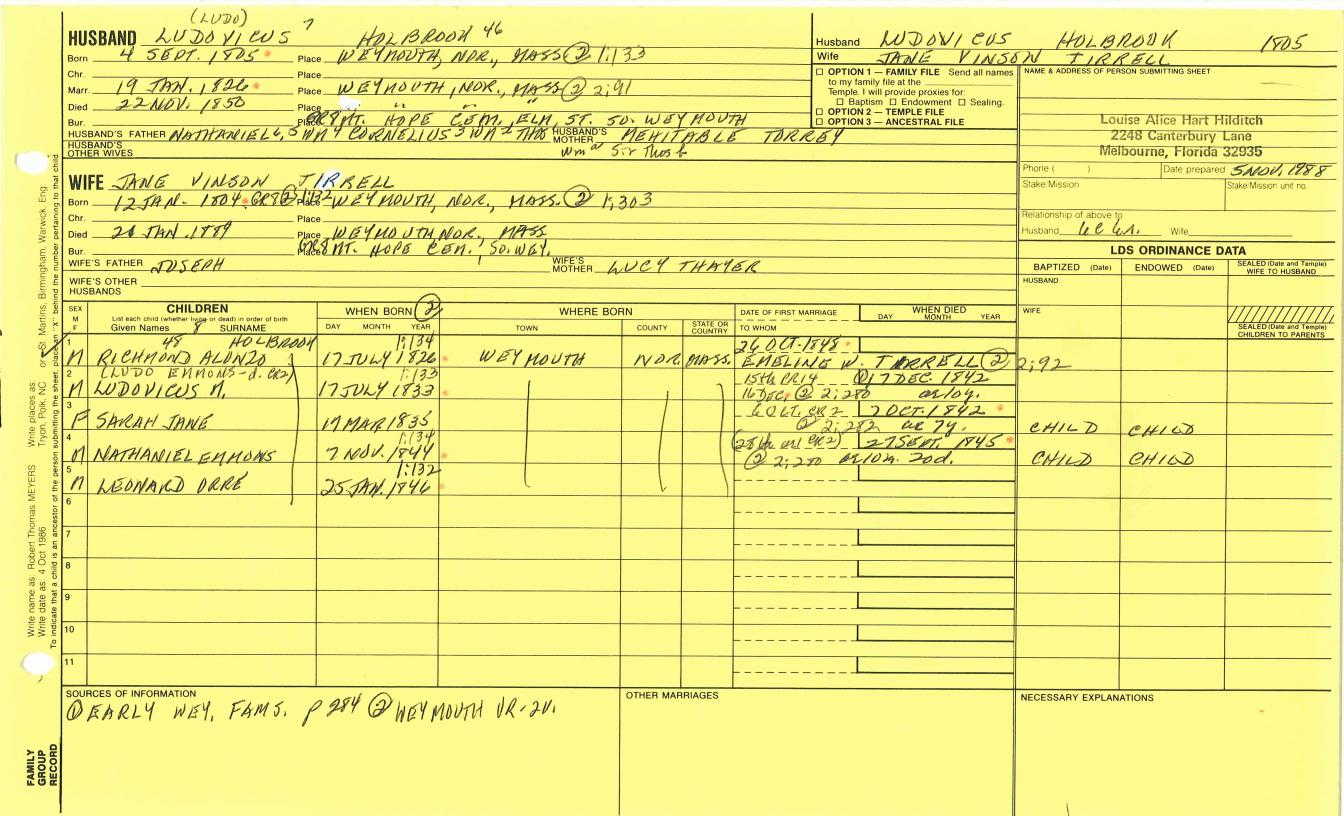 (LUDO)
HUSBAND LUDOVICUS 7 HOLBROOK 46
Born 4 SEPT. 1805 Place WEYMOUTH, NOR., MASS ② 1;133
Chr. Place
Marr. 19 JAN. 1826 Place WEYMOUTH, NOR., MASS ② 2;91
Died 22 NOV. 1850 Place " " "
Bur. Place GR8 MT. HOPE CEM., ELM, ST. SO. WEYMOUTH
HUSBAND'S FATHER NATHANIEL 6, 5 WM 4 CORNELIUS 3 WM 2 THOS HUSBAND'S MOTHER MEHITABLE TORREY
HUSBAND'S OTHER WIVES
Husband LUDOVICUS HOLBROOK 1805
Wife JANE VINSON TIRRELL
☐ OPTION 1 — FAMILY FILE Send all names
to my family file at the
Temple. I will provide proxies for:
☐ Baptism ☐ Endowment ☐ Sealing.
☐ OPTION 2 — TEMPLE FILE
☐ OPTION 3 — ANCESTRAL FILE
NAME & ADDRESS OF PERSON SUBMITTING SHEET
Louise Alice Hart Hilditch
2248 Canterbury Lane
Melbourne, Florida 32935
Phone ( ) Date prepared 5 NOV. 1988
Stake/Mission Stake/Mission unit no.
Relationship of above to
Husband Wife
WIFE JANE VINSON TIRRELL
Born 12 JAN- 1804 GR8 Place WEYMOUTH, NOR., MASS. ② 1;303
Chr. Place
Died JAN. 1889 Place WEYMOUTH, NOR., MASS
Bur. Place GR8 MT. HOPE CEM., SO. WEY.
WIFE'S FATHER JOSEPH WIFE'S MOTHER LUCY THAYER
WIFE'S OTHER HUSBANDS
LDS ORDINANCE DATA
BAPTIZED (Date) ENDOWED (Date) SEALED (Date and Temple) WIFE TO HUSBAND
HUSBAND
WIFE
SEALED (Date and Temple) CHILDREN TO PARENTS
SEX M F CHILDREN
List each child (whether living or dead) in order of birth
Given Names 8 SURNAME
WHEN BORN ②
DAY MONTH YEAR
WHERE BORN
TOWN COUNTY STATE OR COUNTRY
DATE OF FIRST MARRIAGE
TO WHOM
WHEN DIED
DAY MONTH YEAR
48 HOLBROOK 1;134 26 OCT. 1848
1 M RICHMOND ALONZO 17 JULY 1826 WEYMOUTH NOR. MASS. EMELINE W. TIRRELL ② 2;92
(LUDO EMMONS-d. CR2) 1;133 15th PR14 ① 17 DEC. 1842
2 M LUDOVICUS M. 17 JULY 1833 16 DEC. ② 2;280 ae 10y.
3 6 OCT. CR2 7 OCT. 1842
F SARAH JANE 17 MAR 1835 ② 2;282 ae 7y. CHILD CHILD
4 1;134 (28th CR2) 27 SEPT. 1845
M NATHANIEL EMMONS 7 NOV. 1844 ② 2;280 ae 10m. 20d. CHILD CHILD
5 1;132
M LEONARD ORRE 25 JAN. 1846
6
7
8
9
10
11
SOURCES OF INFORMATION
① EARLY WEY. FAMS. P 284 ② WEYMOUTH VR-2V.
OTHER MARRIAGES
NECESSARY EXPLANATIONS
Write name as: Robert Thomas MEYERS Write places as: Tryon, Polk, NC or St. Martins, Birmingham, Warwick, Eng.
Write date as: 4 Oct 1986
To indicate that a child is an ancestor of the person submitting the sheet, place an "X" behind the number pertaining to that child
FAMILY
GROUP
RECORD